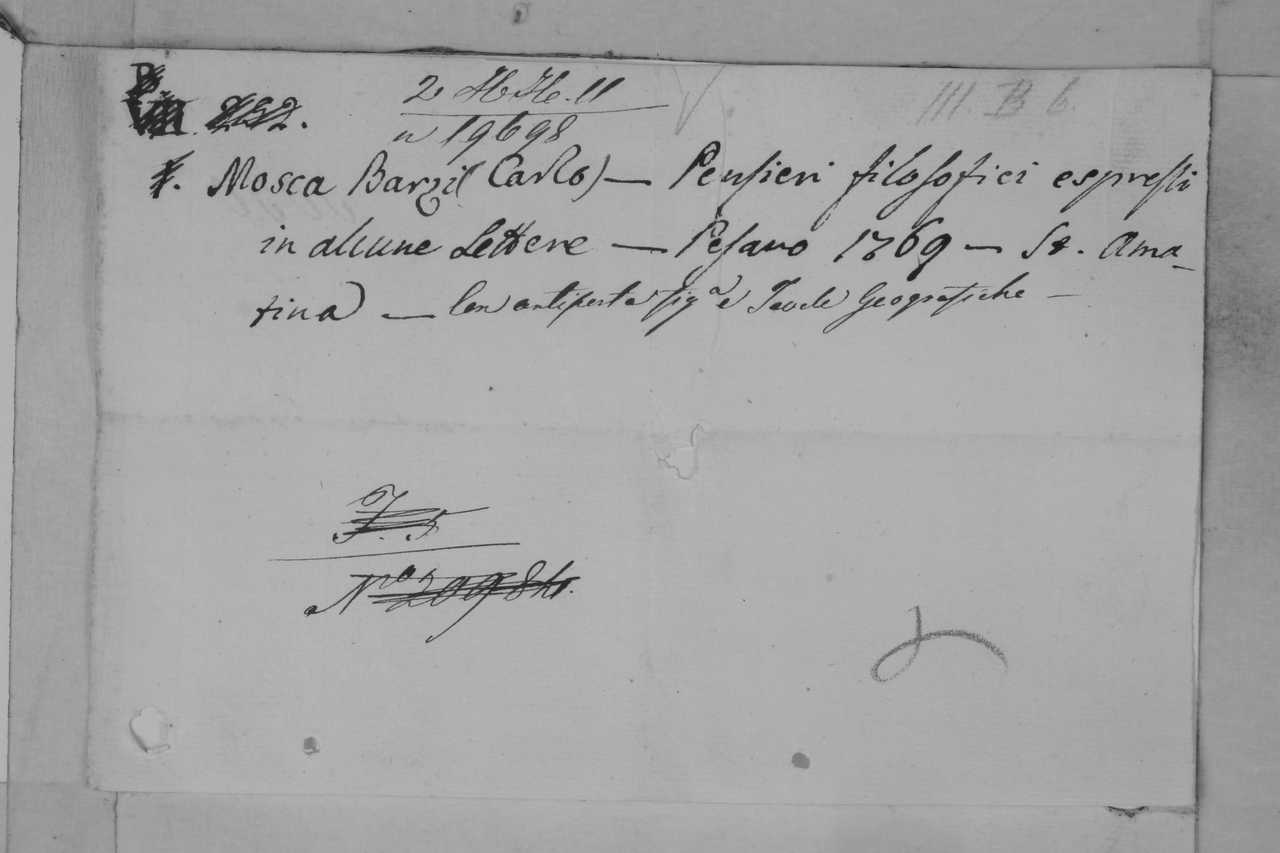 2 Ab He. 11
III. B 6.
n 19698
4. Mosca Barzi (Carlo) — Pensieri filosofici espressi
in alcune Lettere — Pesaro 1769 — St. Ama-
tina) — Con antiporta fig.a e Tavole Geografiche —
F. 5
No 20984.